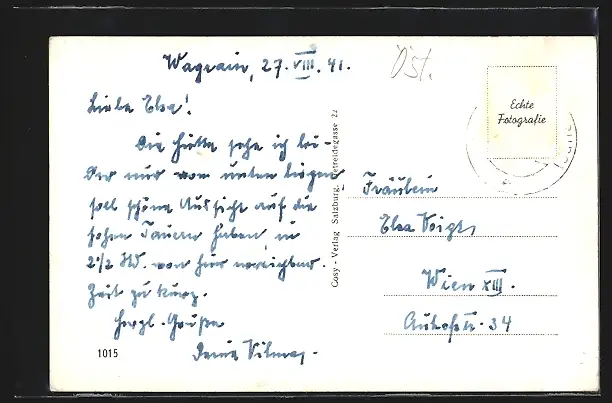 Wagrain, 27. VIII. 41.
Öst.
Liebe Elsa!
Die Hütte sehe ich lei-
der nur von unten liegen
soll schöne Aussicht auf die
hohen Tauern haben, in
2½ Std. von hier erreichbar.
Zeit zu kurz.
Herzl. Grüße
Deine
Echte
Fotografie
Cosy - Verlag Salzburg, Getreidegasse 22
Fräulein
Elsa Voigt,
Wien XIII.
34
1015